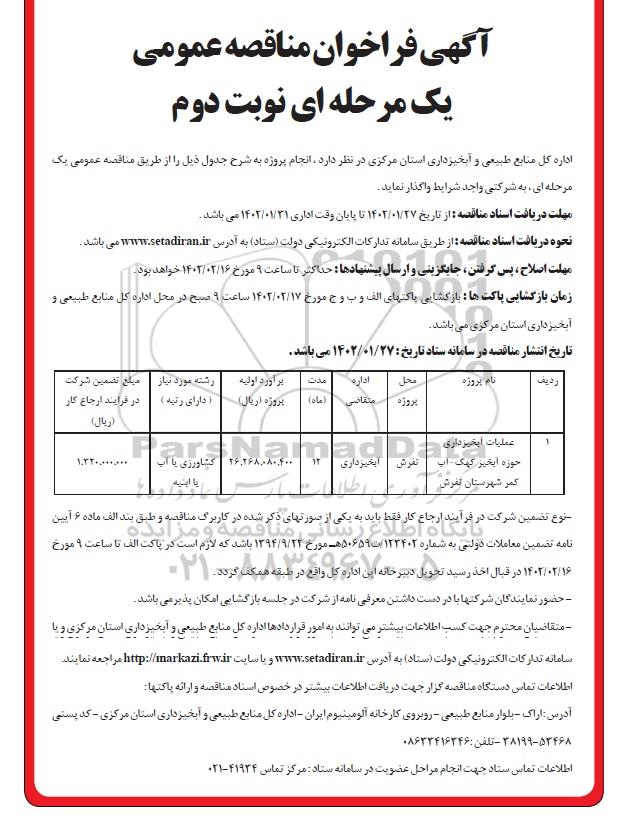 آگهی فراخوان مناقصه عمومی
یک مرحله ای نوبت دوم
اداره کل منابع طبیعی و آبخیزداری استان مرکزی در نظر دارد ، انجام پروژه به شرح جدول ذیل را از طریق مناقصه عمومی یک
مرحله ای ، به شرکتی واجد شرایط واگذار نماید.
مهلت دریافت اسناد مناقصه : از تاریخ ۱۴۰۲/۰۱/۲۷ تا پایان وقت اداری ۱۴۰۲/۰۱/۳۱ می باشد .
نحوه دریافت اسناد مناقصه : از طریق سامانه تدارکات الکترونیکی دولت (ستاد) به آدرس www.setadiran.ir می باشد .
مهلت اصلاح ، پس گرفتن ، جایگزینی و ارسال پیشنهادها : حداکثر تا ساعت ۹ مورخ ۱۴۰۲/۰۲/۱۶ خواهد بود .
زمان بازگشایی پاکت ها : بازگشایی پاکتهای الف و ب و ج مورخ ۱۴۰۲/۰۲/۱۷ ساعت ۹ صبح در محل اداره کل منابع طبیعی و
آبخیزداری استان مرکزی می باشد.
تاریخ انتشار مناقصه در سامانه ستاد تاریخ : ۱۴۰۲/۰۱/۲۷ می باشد .
ردیف | نام پروژه | محل پروژه | اداره متقاضی | مدت (ماه) | برآورد اولیه پروژه (ریال) | رشته مورد نیاز ( دارای رتبه ) | مبلغ تضمین شرکت در فرآیند ارجاع کار (ریال)
۱ | عملیات آبخیزداری حوزه آبخیز کهک-آب کمر شهرستان تفرش | تفرش | آبخیزداری | ۱۲ | ۲۶.۲۶۸.۰۸۰.۴۰۰ | کشاورزی یا آب یا ابنیه | ۱.۳۲۰.۰۰۰.۰۰۰
-نوع تضمین شرکت در فرآیند ارجاع کار فقط باید به یکی از صورتهای ذکر شده در کاربرگ مناقصه و طبق بند الف ماده ۶ آیین
نامه تضمین معاملات دولتی به شماره ۱۲۳۴۰۲/ت۵۰۶۵۹هـ مورخ ۱۳۹۴/۹/۲۲ باشد که لازم است در پاکت الف تا ساعت ۹ مورخ
۱۴۰۲/۰۲/۱۶ در قبال اخذ رسید تحویل دبیرخانه این اداره کل واقع در طبقه همکف گردد .
- حضور نمایندگان شرکتها با در دست داشتن معرفی نامه از شرکت در جلسه بازگشایی امکان پذیر می باشد .
- متقاضیان محترم جهت کسب اطلاعات بیشتر می توانند به امور قراردادها اداره کل منابع طبیعی و آبخیزداری استان مرکزی و یا
سامانه تدارکات الکترونیکی دولت (ستاد) به آدرس www.setadiran.ir و یا سایت http://markazi.frw.ir مراجعه نمایند.
اطلاعات تماس دستگاه مناقصه گزار جهت دریافت اطلاعات بیشتر در خصوص اسناد مناقصه و ارائه پاکتها:
آدرس : اراک - بلوار منابع طبیعی - روبروی کارخانه آلومینیوم ایران - اداره کل منابع طبیعی و آبخیزداری استان مرکزی - کد پستی
۳۸۱۹۹-۵۳۴۶۸ - تلفن : ۰۸۶۳۳۴۱۶۳۴۶
اطلاعات تماس ستاد جهت انجام مراحل عضویت در سامانه ستاد : مرکز تماس ۴۱۹۳۴-۰۲۱
ParsNamadData
پایگاه اطلاع رسانی مناقصه و مزایده
۰۲۱-۸۸۳۴۹۶۷۰-۵